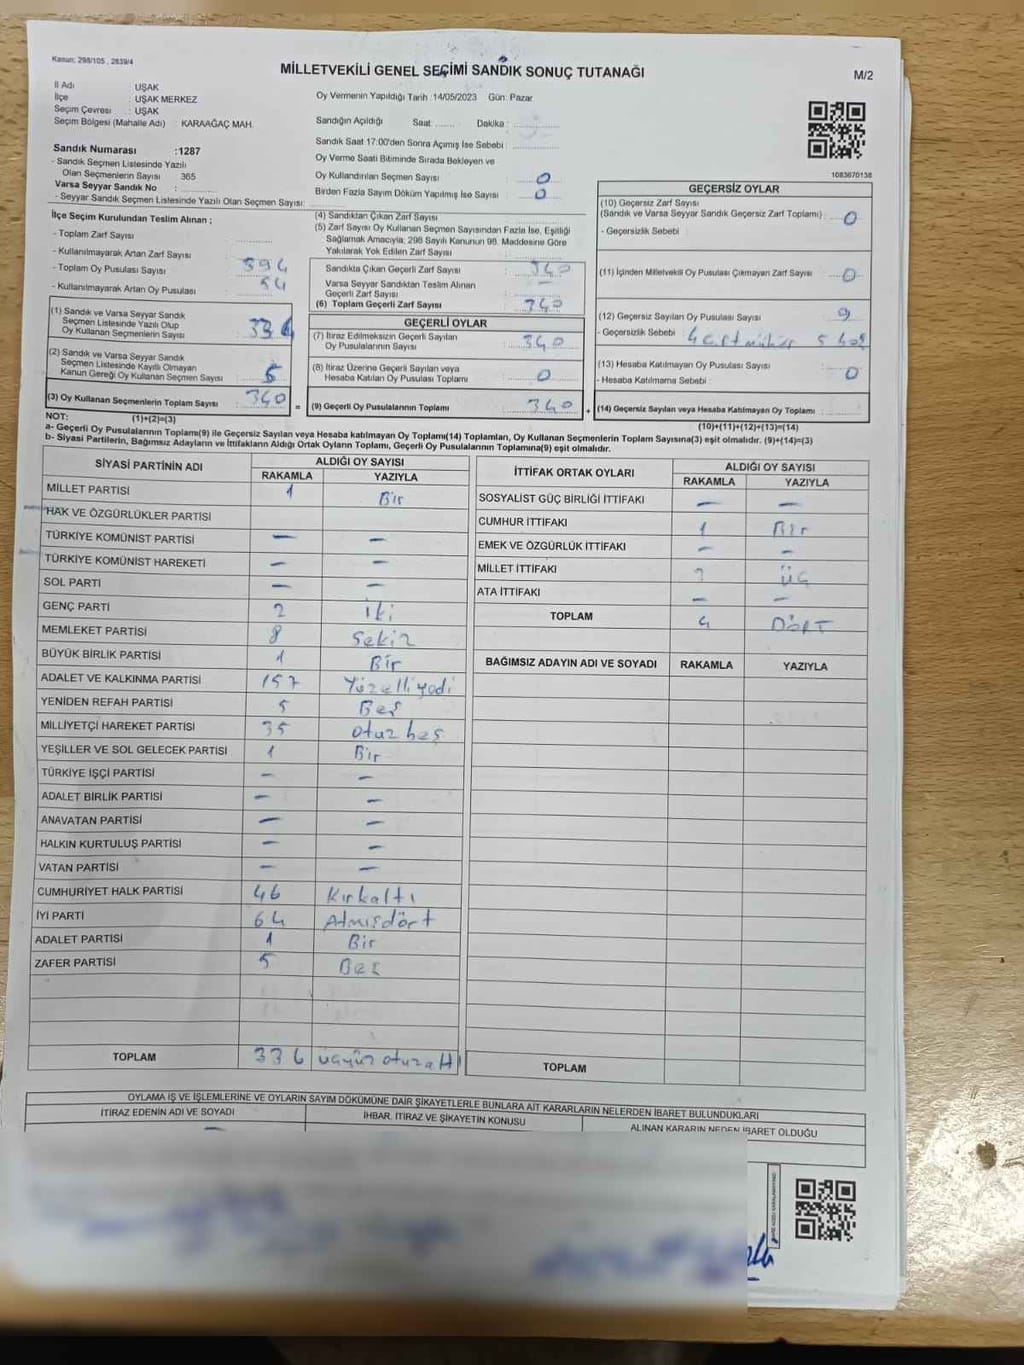 Kanun: 298/105 , 2839/4
MİLLETVEKİLİ GENEL SEÇİMİ SANDIK SONUÇ TUTANAĞI
M/2
İl Adı : UŞAK
İlçe : UŞAK MERKEZ
Seçim Çevresi : UŞAK
Seçim Bölgesi (Mahalle Adı) : KARAAĞAÇ MAH.
Sandık Numarası :1287
- Sandık Seçmen Listesinde Yazılı
Olan Seçmenlerin Sayısı 365
Varsa Seyyar Sandık No :
- Seyyar Sandık Seçmen Listesinde Yazılı Olan Seçmen Sayısı:
Oy Vermenin Yapıldığı Tarih :14/05/2023 Gün: Pazar
Sandığın Açıldığı Saat: Dakika :
Sandık Saat 17:00'den Sonra Açımış İse Sebebi :
Oy Verme Saati Bitiminde Sırada Bekleyen ve
Oy Kullandırılan Seçmen Sayısı 0
Birden Fazla Sayım Döküm Yapılmış İse Sayısı 0
1083670138
İlçe Seçim Kurulundan Teslim Alınan ;
- Toplam Zarf Sayısı
- Kullanılmayarak Artan Zarf Sayısı
- Toplam Oy Pusulası Sayısı 394
- Kullanılmayarak Artan Oy Pusulası 54
(1) Sandık ve Varsa Seyyar Sandık
Seçmen Listesinde Yazılı Olup
Oy Kullanan Seçmenlerin Sayısı
(2) Sandık ve Varsa Seyyar Sandık
Seçmen Listesinde Kayıtlı Olmayan
Kanun Gereği Oy Kullanan Seçmen Sayısı
(3) Oy Kullanan Seçmenlerin Toplam Sayısı 340 =
(1)+(2)=(3)
(4) Sandıktan Çıkan Zarf Sayısı
(5) Zarf Sayısı Oy Kullanan Seçmen Sayısından Fazla İse, Eşitliği
Sağlamak Amacıyla; 298 Sayılı Kanunun 98. Maddesine Göre
Yakılarak Yok Edilen Zarf Sayısı
Sandıkta Çıkan Geçerli Zarf Sayısı 340
Varsa Seyyar Sandıktan Teslim Alınan
Geçerli Zarf Sayısı —
(6) Toplam Geçerli Zarf Sayısı 340
GEÇERLİ OYLAR
(7) İtiraz Edilmeksizin Geçerli Sayılan
Oy Pusulalarının Sayısı 340
(8) İtiraz Üzerine Geçerli Sayılan veya
Hesaba Katılan Oy Pusulası Toplamı 0
(9) Geçerli Oy Pusulalarının Toplamı 340 +
GEÇERSİZ OYLAR
(10) Geçersiz Zarf Sayısı
(Sandık ve Varsa Seyyar Sandık Geçersiz Zarf Toplamı) : 0
- Geçersizlik Sebebi :
(11) İçinden Milletvekili Oy Pusulası Çıkmayan Zarf Sayısı 0
(12) Geçersiz Sayılan Oy Pusulası Sayısı 9
- Geçersizlik Sebebi :
(13) Hesaba Katılmayan Oy Pusulası Sayısı 0
- Hesaba Katılmama Sebebi :
(14) Geçersiz Sayılan veya Hesaba Katılmayan Oy Toplamı
(10)+(11)+(12)+(13)=(14)
NOT:
a- Geçerli Oy Pusulalarının Toplamı(9) ile Geçersiz Sayılan veya Hesaba katılmayan Oy Toplamı(14) Toplamları, Oy Kullanan Seçmenlerin Toplam Sayısına(3) eşit olmalıdır. (9)+(14)=(3)
b- Siyasi Partilerin, Bağımsız Adayların ve İttifakların Aldığı Ortak Oyların Toplamı, Geçerli Oy Pusulalarının Toplamına(9) eşit olmalıdır.
SİYASİ PARTİNİN ADI ALDIĞI OY SAYISI
RAKAMLA YAZIYLA
MİLLET PARTİSİ 1 Bir
HAK VE ÖZGÜRLÜKLER PARTİSİ
TÜRKİYE KOMÜNİST PARTİSİ — —
TÜRKİYE KOMÜNİST HAREKETİ — —
SOL PARTİ — —
GENÇ PARTİ 2 İki
MEMLEKET PARTİSİ 8 Sekiz
BÜYÜK BİRLİK PARTİSİ 1 Bir
ADALET VE KALKINMA PARTİSİ 157 Yüzelliyedi
YENİDEN REFAH PARTİSİ 5 Beş
MİLLİYETÇİ HAREKET PARTİSİ 35 otuz beş
YEŞİLLER VE SOL GELECEK PARTİSİ 1 Bir
TÜRKİYE İŞÇİ PARTİSİ — —
ADALET BİRLİK PARTİSİ — —
ANAVATAN PARTİSİ — —
HALKIN KURTULUŞ PARTİSİ — —
VATAN PARTİSİ — —
CUMHURİYET HALK PARTİSİ 46 Kırkaltı
İYİ PARTİ 64 Atmışdört
ADALET PARTİSİ 1 Bir
ZAFER PARTİSİ 5 Beş
TOPLAM 336 üçyüz otuzaltı
İTTİFAK ORTAK OYLARI ALDIĞI OY SAYISI
RAKAMLA YAZIYLA
SOSYALİST GÜÇ BİRLİĞİ İTTİFAKI — —
CUMHUR İTTİFAKI 1 Bir
EMEK VE ÖZGÜRLÜK İTTİFAKI — —
MİLLET İTTİFAKI 3 üç
ATA İTTİFAKI — —
TOPLAM 4 DÖRT
BAĞIMSIZ ADAYIN ADI VE SOYADI RAKAMLA YAZIYLA
TOPLAM
OYLAMA İŞ VE İŞLEMLERİNE VE OYLARIN SAYIM DÖKÜMÜNE DAİR ŞİKAYETLERLE BUNLARA AİT KARARLARIN NELERDEN İBARET BULUNDUKLARI
İTİRAZ EDENİN ADI VE SOYADI İHBAR, İTİRAZ VE ŞİKAYETİN KONUSU ALINAN KARARIN NEDEN İBARET OLDUĞU
—